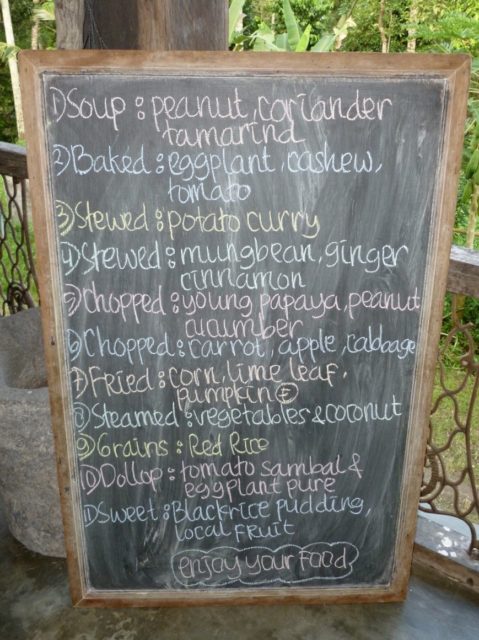 ① Soup: peanut, coriander
tamarind
② Baked: eggplant, cashew,
tomato
③ Stewed: potato curry
④ Stewed: mungbean, ginger
cinnamon
⑤ Chopped: young papaya, peanut
cucumber
⑥ Chopped: carrot, apple, cabbage
⑦ Fried: corn, lime leaf,
pumpkin
⑧ Steamed: vegetables & coconut
⑨ Grains: Red Rice
⑩ Dollop: tomato sambal &
eggplant pure
⑪ Sweet: Blackrice pudding,
local fruit
enjoy your food